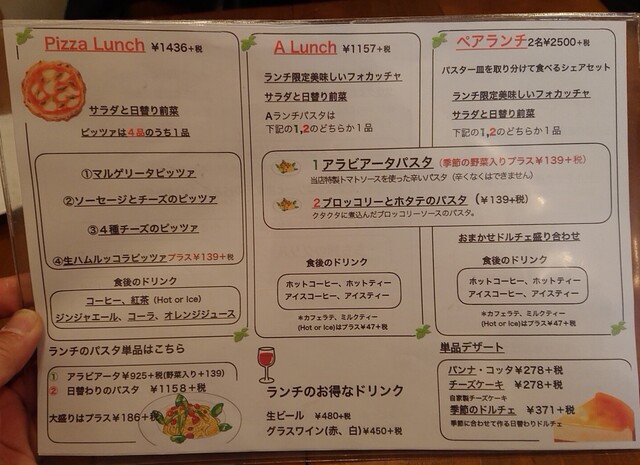 Pizza Lunch ¥1436+税
サラダと日替り前菜
ピッツァは４品のうち1品
①マルゲリータピッツァ
②ソーセージとチーズのピッツァ
③４種チーズのピッツァ
④生ハムルッコラピッツァプラス¥139+税
食後のドリンク
コーヒー、紅茶 (Hot or Ice)
ジンジャエール、コーラ、オレンジジュース
A Lunch ¥1157+税
ランチ限定美味しいフォカッチャ
サラダと日替り前菜
Aランチパスタは
下記の1,2のどちらか１品
ペアランチ2名¥2500+税
パスタ一皿を取り分けて食べるシェアセット
ランチ限定美味しいフォカッチャ
サラダと日替り前菜
下記の1,2のどちらか１品
1 アラビアータパスタ (季節の野菜入りプラス¥139+税)
当店特製トマトソースを使った辛いパスタ（辛くなくはできません）
2 ブロッコリーとホタテのパスタ (¥139+税)
クタクタに煮込んだブロッコリーソースのパスタ。
食後のドリンク
ホットコーヒー、ホットティー
アイスコーヒー、アイスティー
＊カフェラテ、ミルクティー
(Hot or Ice)はプラス¥47+税
おまかせドルチェ盛り合わせ
食後のドリンク
ホットコーヒー、ホットティー
アイスコーヒー、アイスティー
＊カフェラテ、ミルクティー
(Hot or Ice)はプラス¥47+税
ランチのパスタ単品はこちら
① アラビアータ¥925+税(野菜入り+139)
② 日替わりのパスタ ¥1158+税
大盛りはプラス¥186+税
ランチのお得なドリンク
生ビール ¥480+税
グラスワイン(赤、白)¥450+税
単品デザート
パンナ・コッタ¥278+税
チーズケーキ ¥278+税
自家製チーズケーキ
季節のドルチェ ¥371+税
季節に合わせて作る日替わりドルチェ